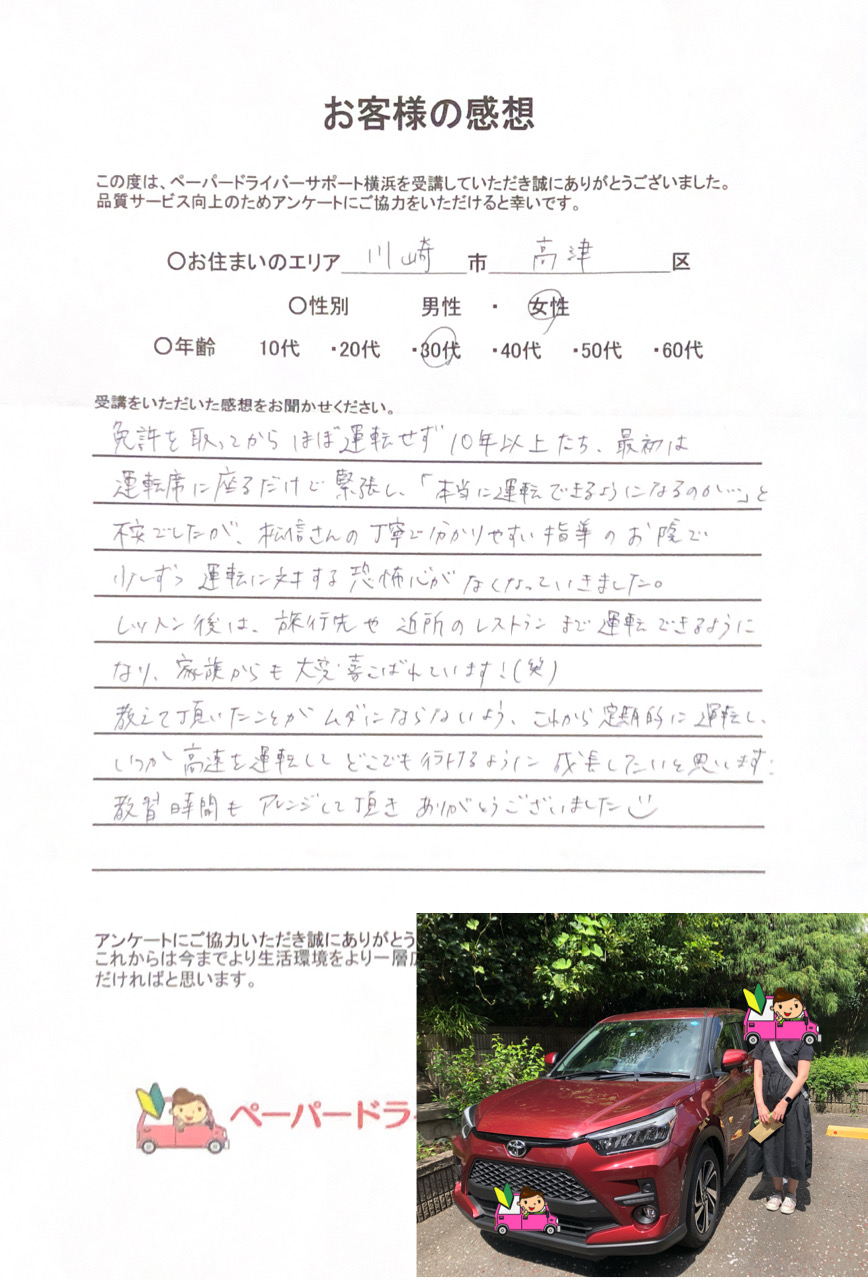 お客様の感想
この度は、ペーパードライバーサポート横浜を受講していただき誠にありがとうございました。
品質サービス向上のためアンケートにご協力をいただけると幸いです。
〇お住まいのエリア 川崎 市 高津 区
〇性別 男性 ・ 女性
〇年齢 10代 ・20代 ・30代 ・40代 ・50代 ・60代
受講をいただいた感想をお聞かせください。
免許を取ってからほぼ運転せず10年以上たち、最初は
運転席に座るだけで緊張し、「本当に運転できるようになるのか…」と
不安でしたが、松信さんの丁寧で分かりやすい指導のお陰で
少しずつ運転に対する恐怖心がなくなっていきました。
レッスン後は、旅行先や近所のレストランまで運転できるように
なり、家族からも大変喜こばれています!(笑)
教えて頂いたことがムダにならないよう、これから定期的に運転し、
いつか高速を運転してどこでも行けるように成長したいと思います!
教習時間もアレンジして頂きありがとうございました
アンケートにご協力いただき誠にありがとう
これからは今までより生活環境をより一層広
だければと思います。
ペーパードライ